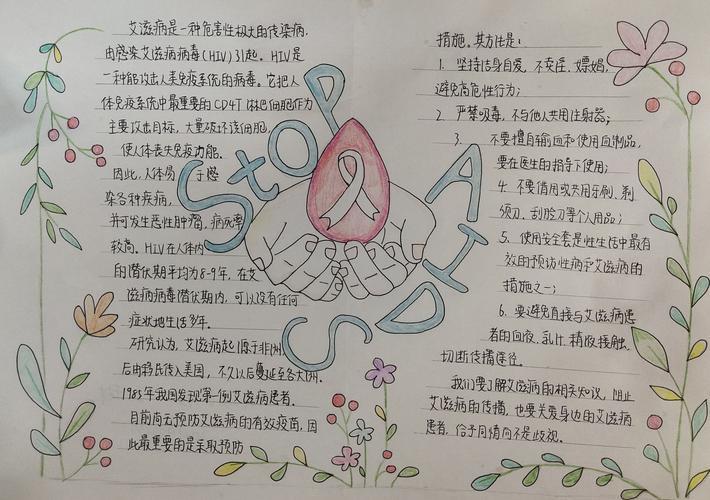 艾滋病是一种危害性极大的传染病,
由感染艾滋病病毒(HIV)引起。HIV是
一种能攻击人类免疫系统的病毒。它把人
体免疫系统中最重要的CD4T淋巴细胞作为
主要攻击目标,大量破坏该细胞,
使人体丧失免疫功能。
因此,人体易于感
染各种疾病,
并可发生恶性肿瘤,病死率
较高。HIV在人体内
的潜伏期平均为8-9年,在艾
滋病病毒潜伏期内,可以没有任何
症状地生活多年。
研究认为,艾滋病起源于非洲,
后由移民传入美国,不久以后蔓延至各大洲。
1985年我国发现第一例艾滋病患者.
目前尚无预防艾滋病的有效疫苗,因
此最重要的是采取预防
StOP
AIDS
措施。其方法是:
1. 坚持洁身自爱,不卖淫、嫖娼,
避免高危性行为;
2. 严禁吸毒,不与他人共用注射器;
3. 不要擅自输血和使用血制品,
要在医生的指导下使用;
4. 不要借用或共用牙刷、剃
须刀、刮脸刀等个人用品;
5. 使用安全套是性生活中最有
效的预访性病和艾滋病的
措施之一;
6. 要避免直接与艾滋病患
者的血液、乳汁、精液接触,
切断传播途径。
我们要了解艾滋病的相关知识,阻止
艾滋病的传播,也要关爱身边的艾滋病
患者,给予同情而不是歧视。